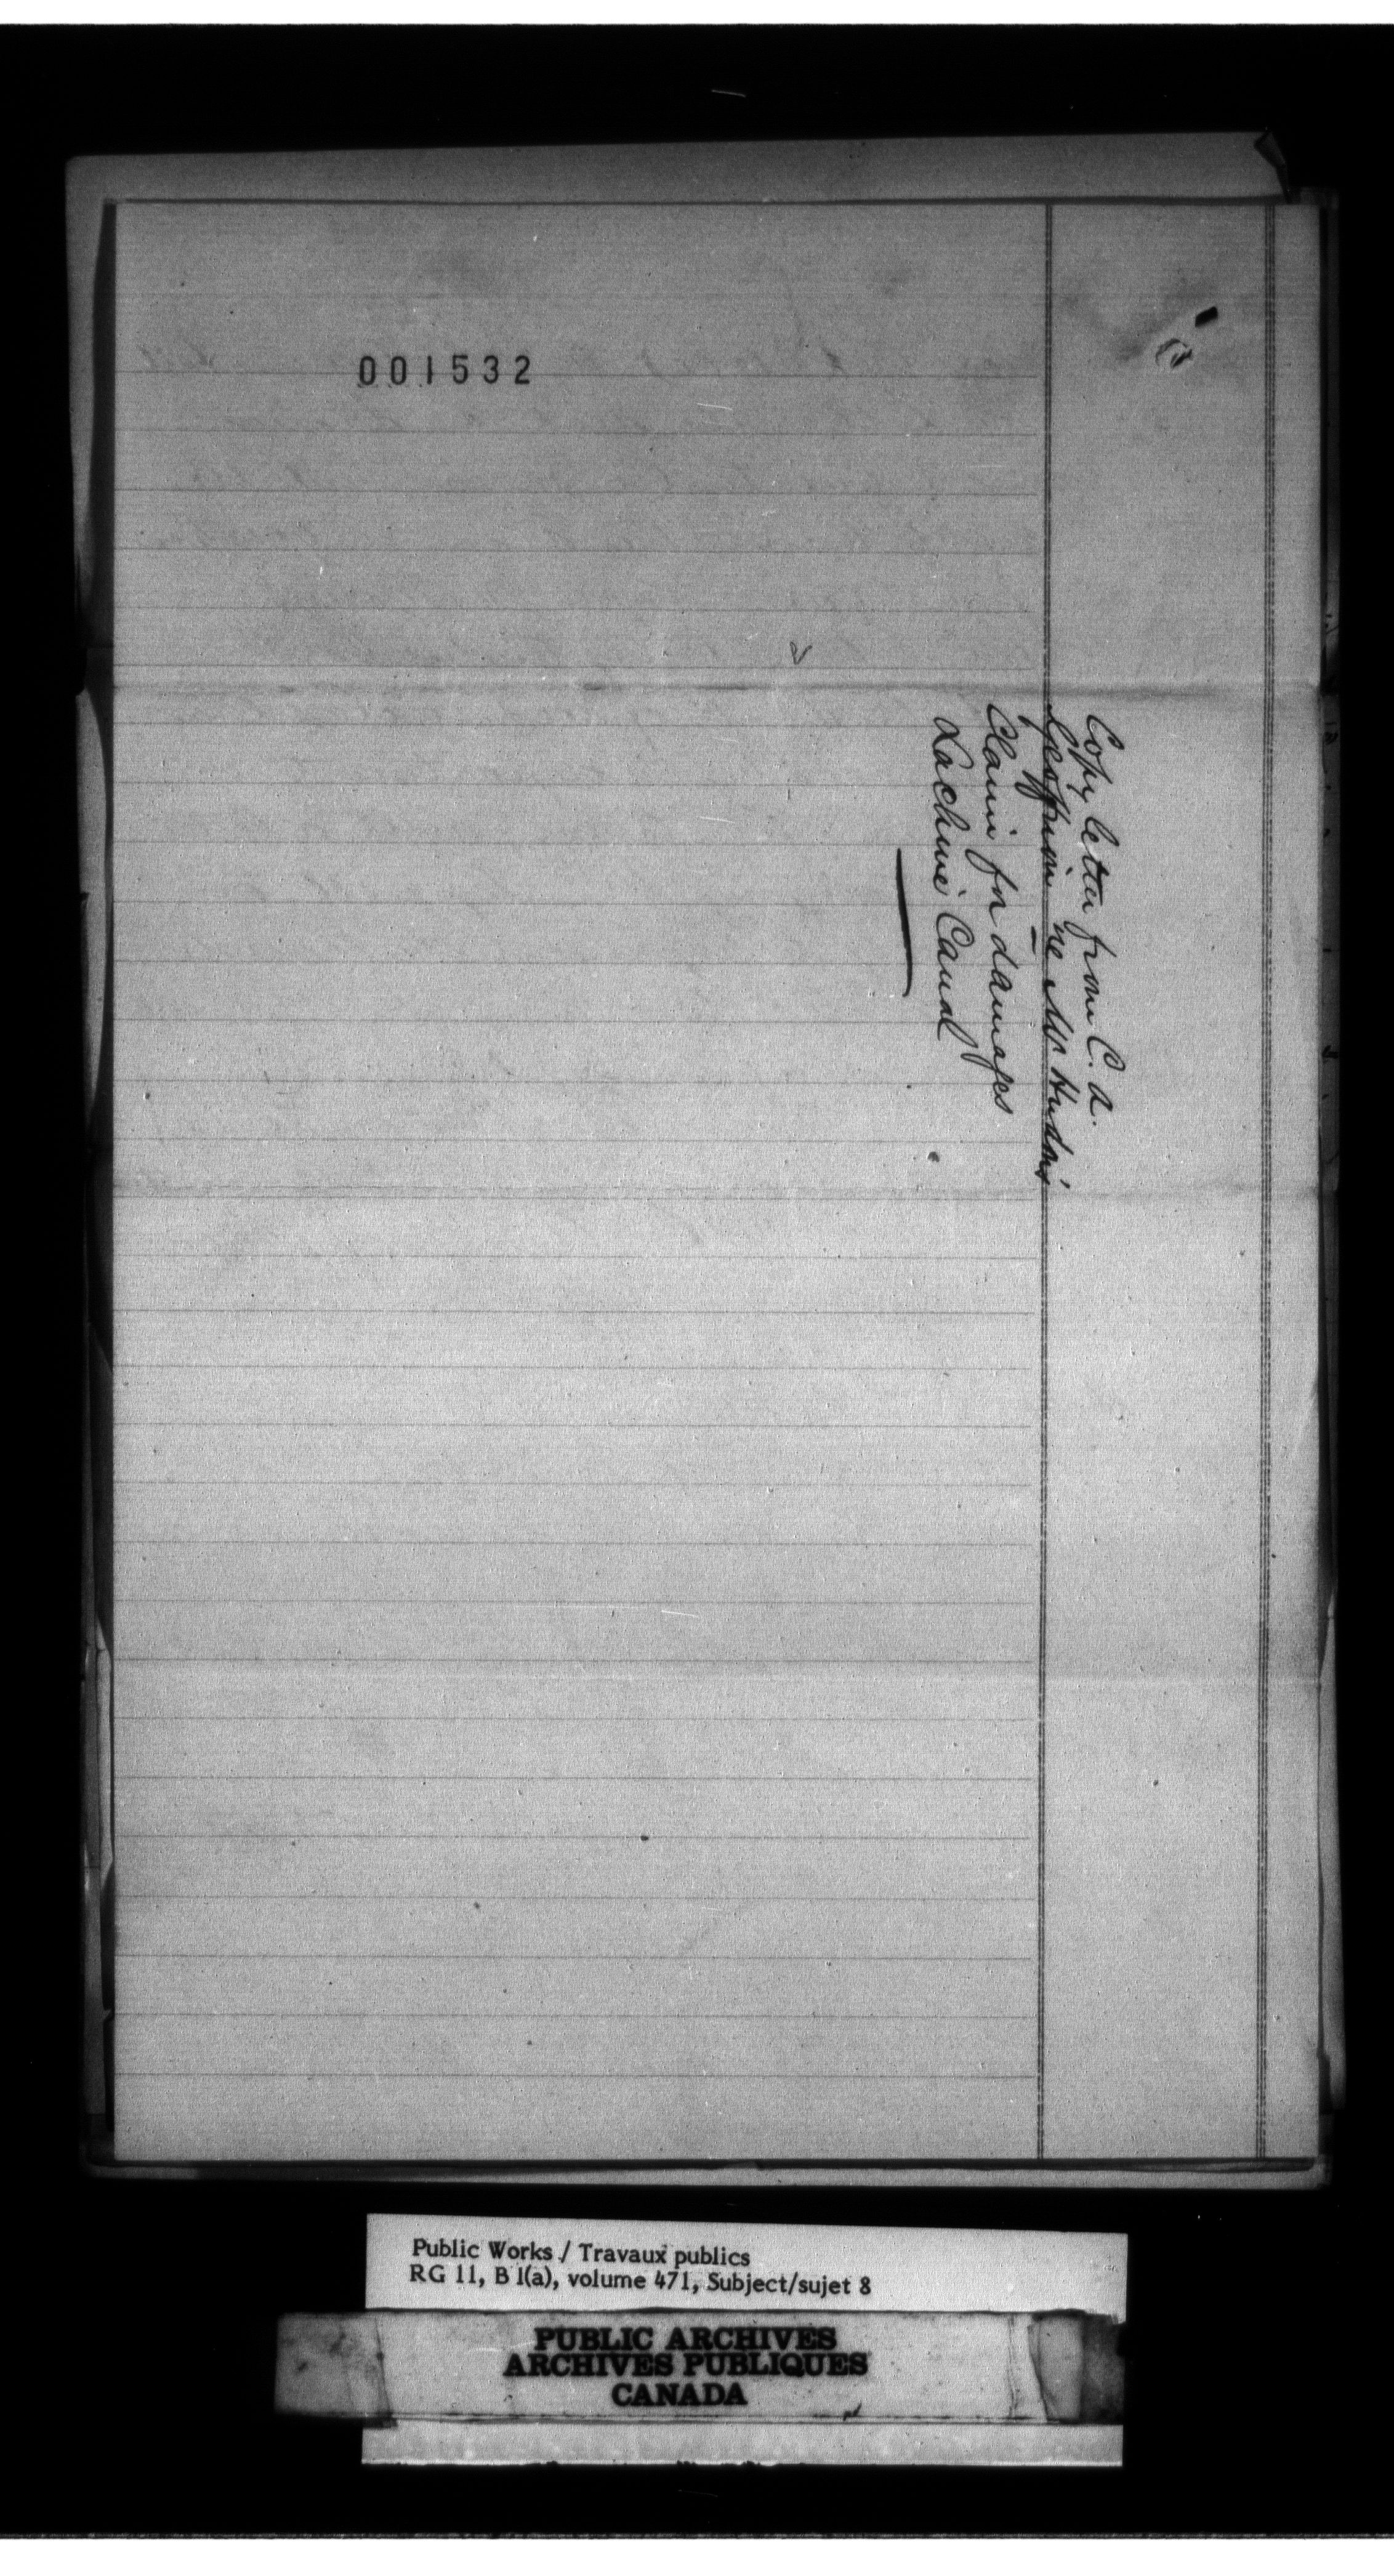 001532
Copy letter from C. A.
Geoffrion re Mr Hudon's
Claim for damages
Lachine Canal
Public Works / Travaux publics
RG 11, B 1(a), volume 471, Subject/sujet 8
PUBLIC ARCHIVES
ARCHIVES PUBLIQUES
CANADA